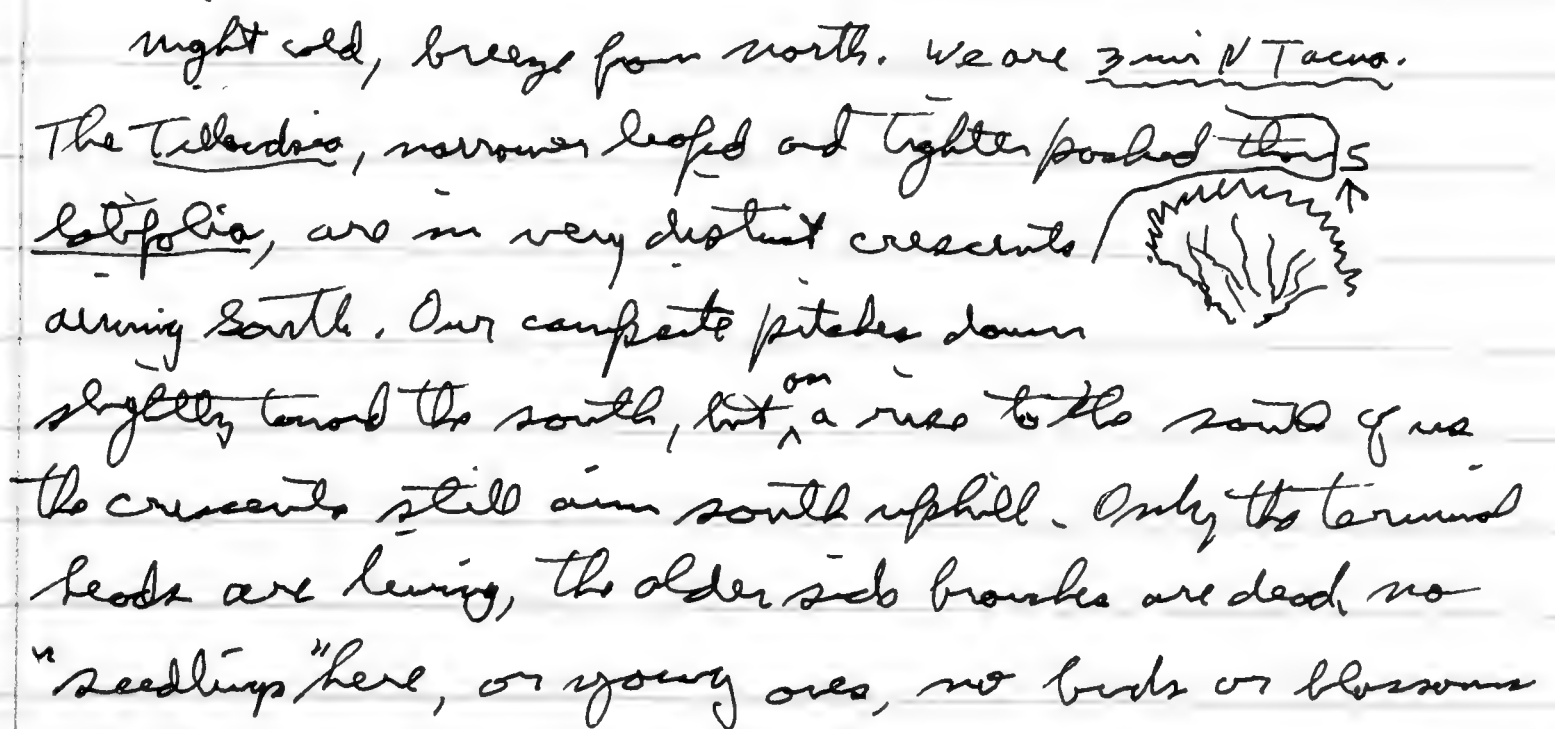 night cold, breeze from north. We are 3 mi N Tacna.
The Tillandsia, narrower leafed and tighter packed than
latifolia, are in very distinct crescents
S
aiming South. Our campsite pitches down
slightly toward the south, but on a rise to the south of us
the crescents still aim south uphill. Only the terminal
heads are living, the older side branches are dead, no
"seedlings" here, or young ones, no buds or blossoms